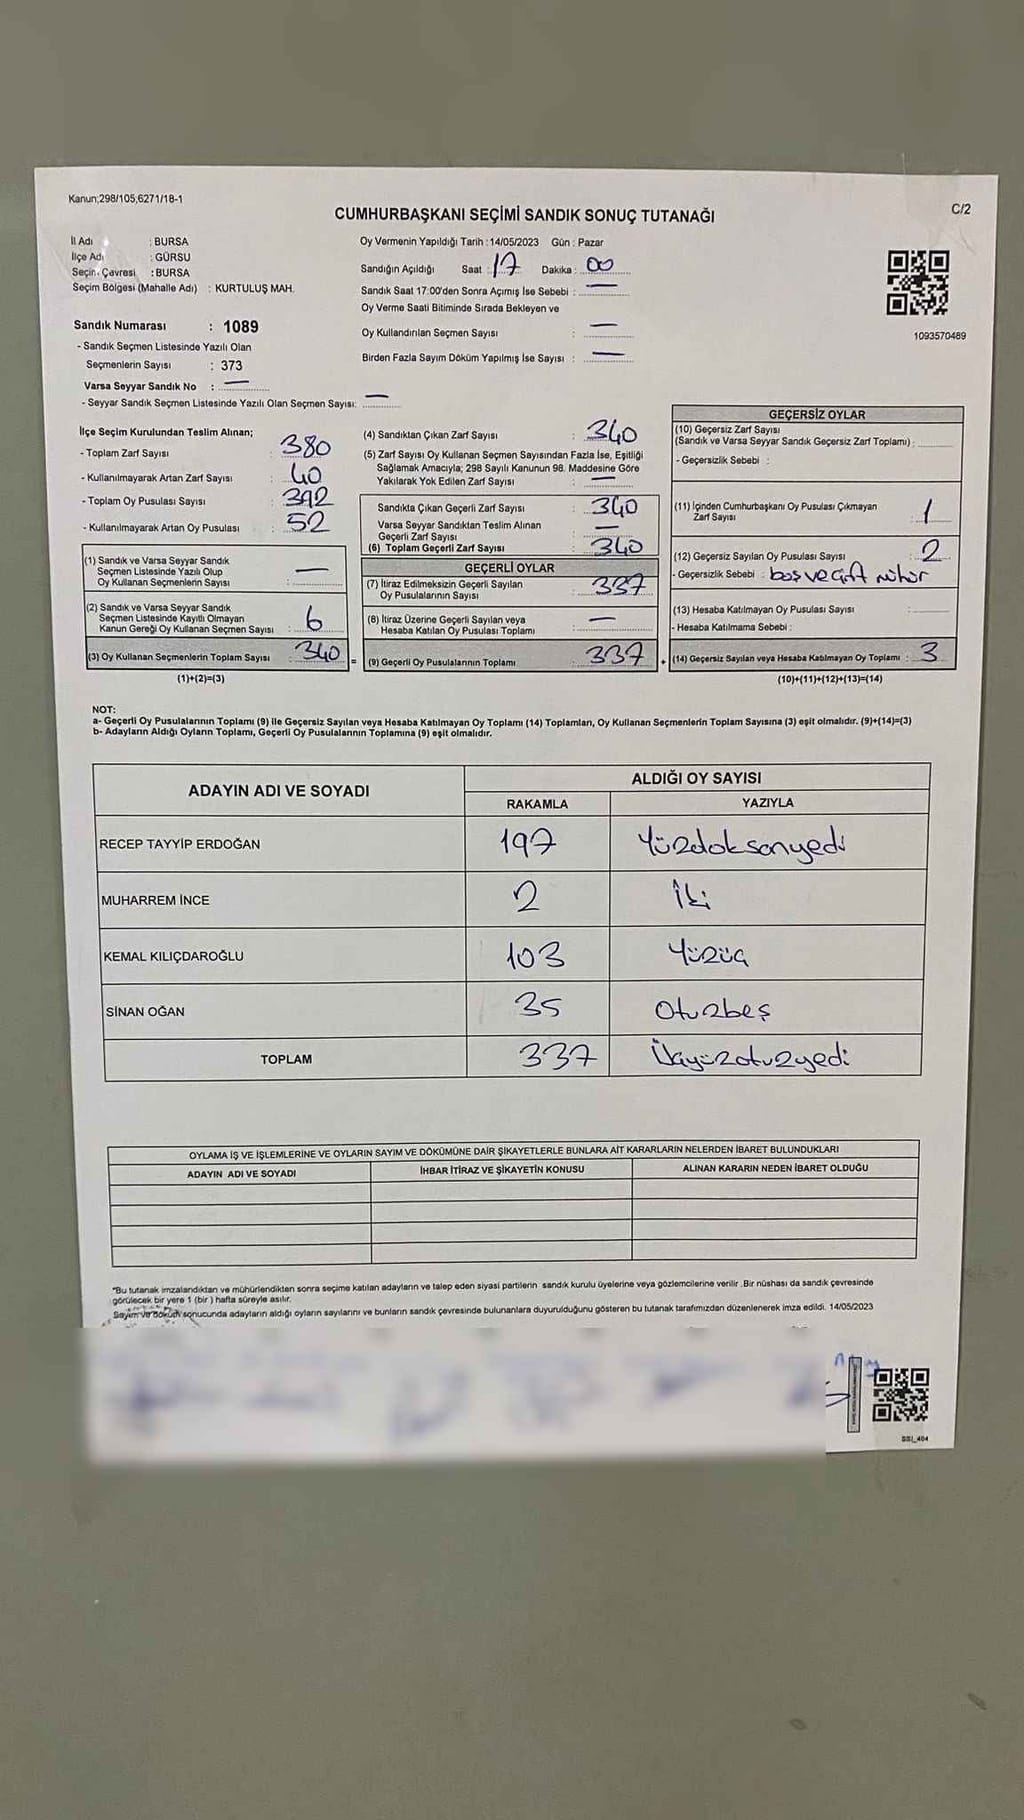 Kanun;298/105,6271/18-1
C/2
CUMHURBAŞKANI SEÇİMİ SANDIK SONUÇ TUTANAĞI
İl Adı : BURSA
İlçe Adı : GÜRSU
Seçim Çevresi : BURSA
Seçim Bölgesi (Mahalle Adı) : KURTULUŞ MAH.
Sandık Numarası : 1089
- Sandık Seçmen Listesinde Yazılı Olan
Seçmenlerin Sayısı : 373
Varsa Seyyar Sandık No : —
- Seyyar Sandık Seçmen Listesinde Yazılı Olan Seçmen Sayısı: —
Oy Vermenin Yapıldığı Tarih : 14/05/2023 Gün : Pazar
Sandığın Açıldığı Saat : 17 Dakika : 00
Sandık Saat 17:00'den Sonra Açımış İse Sebebi : —
Oy Verme Saati Bitiminde Sırada Bekleyen ve
Oy Kullandırılan Seçmen Sayısı : —
Birden Fazla Sayım Döküm Yapılmış İse Sayısı : —
1093570489
İlçe Seçim Kurulundan Teslim Alınan;
- Toplam Zarf Sayısı : 380
- Kullanılmayarak Artan Zarf Sayısı : 40
- Toplam Oy Pusulası Sayısı : 392
- Kullanılmayarak Artan Oy Pusulası : 52
(1) Sandık ve Varsa Seyyar Sandık
Seçmen Listesinde Yazılı Olup
Oy Kullanan Seçmenlerin Sayısı : —
(2) Sandık ve Varsa Seyyar Sandık
Seçmen Listesinde Kayıtlı Olmayan
Kanun Gereği Oy Kullanan Seçmen Sayısı : 6
(3) Oy Kullanan Seçmenlerin Toplam Sayısı : 340
(1)+(2)=(3)
(4) Sandıktan Çıkan Zarf Sayısı : 340
(5) Zarf Sayısı Oy Kullanan Seçmen Sayısından Fazla İse, Eşitliği
Sağlamak Amacıyla; 298 Sayılı Kanunun 98. Maddesine Göre
Yakılarak Yok Edilen Zarf Sayısı : —
Sandıkta Çıkan Geçerli Zarf Sayısı : 340
Varsa Seyyar Sandıktan Teslim Alınan
Geçerli Zarf Sayısı : —
(6) Toplam Geçerli Zarf Sayısı : 340
GEÇERLİ OYLAR
(7) İtiraz Edilmeksizin Geçerli Sayılan
Oy Pusulalarının Sayısı : 337
(8) İtiraz Üzerine Geçerli Sayılan veya
Hesaba Katılan Oy Pusulası Toplamı : —
= (9) Geçerli Oy Pusulalarının Toplamı : 337 +
GEÇERSİZ OYLAR
(10) Geçersiz Zarf Sayısı
(Sandık ve Varsa Seyyar Sandık Geçersiz Zarf Toplamı) :
- Geçersizlik Sebebi :
(11) İçinden Cumhurbaşkanı Oy Pusulası Çıkmayan
Zarf Sayısı : 1
(12) Geçersiz Sayılan Oy Pusulası Sayısı : 2
- Geçersizlik Sebebi : boş ve çift mühür
(13) Hesaba Katılmayan Oy Pusulası Sayısı :
- Hesaba Katılmama Sebebi :
(14) Geçersiz Sayılan veya Hesaba Katılmayan Oy Toplamı : 3
(10)+(11)+(12)+(13)=(14)
NOT:
a- Geçerli Oy Pusulalarının Toplamı (9) ile Geçersiz Sayılan veya Hesaba Katılmayan Oy Toplamı (14) Toplamları, Oy Kullanan Seçmenlerin Toplam Sayısına (3) eşit olmalıdır. (9)+(14)=(3)
b- Adayların Aldığı Oyların Toplamı, Geçerli Oy Pusulalarının Toplamına (9) eşit olmalıdır.
ADAYIN ADI VE SOYADI
ALDIĞI OY SAYISI
RAKAMLA YAZIYLA
RECEP TAYYİP ERDOĞAN 197 Yüzdoksanyedi
MUHARREM İNCE 2 İki
KEMAL KILIÇDAROĞLU 103 Yüzüç
SİNAN OĞAN 35 Otuzbeş
TOPLAM 337 İkiyüzotuzyedi
OYLAMA İŞ VE İŞLEMLERİNE VE OYLARIN SAYIM VE DÖKÜMÜNE DAİR ŞİKAYETLERLE BUNLARA AİT KARARLARIN NELERDEN İBARET BULUNDUKLARI
ADAYIN ADI VE SOYADI İHBAR İTİRAZ VE ŞİKAYETİN KONUSU ALINAN KARARIN NEDEN İBARET OLDUĞU
*Bu tutanak imzalandıktan ve mühürlendikten sonra seçime katılan adayların ve talep eden siyasi partilerin sandık kurulu üyelerine veya gözlemcilerine verilir. Bir nüshası da sandık çevresinde
görülecek bir yere 1 (bir) hafta süreyle asılır.
Sayım ve döküm sonucunda adayların aldığı oyların sayılarını ve bunların sandık çevresinde bulunanlara duyurulduğunu gösteren bu tutanak tarafımızdan düzenlenerek imza edildi. 14/05/2023